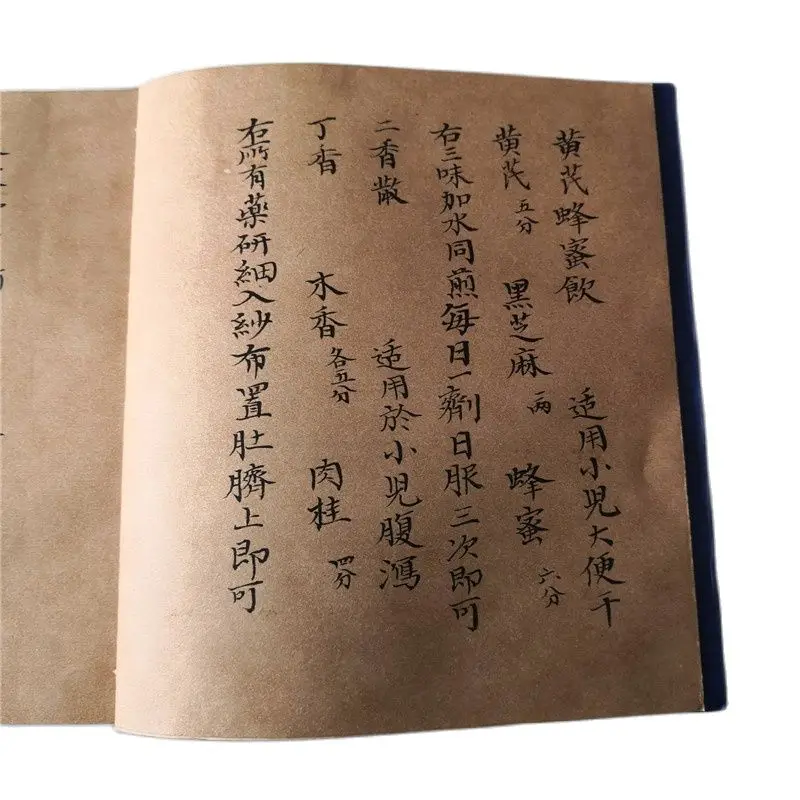 黄芪蜂蜜飲 适用小児大便干
黄芪 五分 黑芝麻 一两 蜂蜜 六分
右三味加水同煎每日一劑日服三次即可
二香散 适用於小児腹瀉
丁香 木香 各五分 肉桂 四分
右所有藥研細入紗布置肚臍上即可